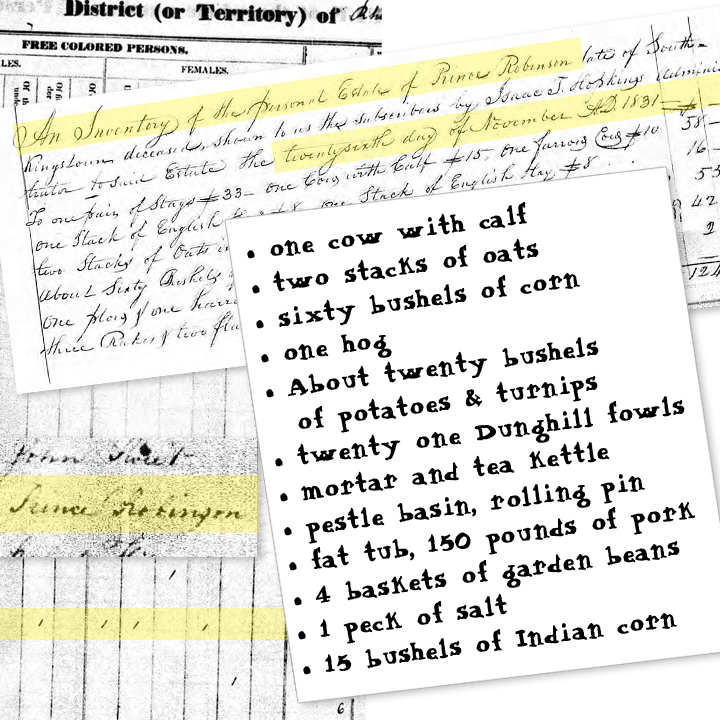 District (or Territory) of
FREE COLORED PERSONS.
LES.
FEMALES.
An Inventory of the personal Estate of Prince Robinson late of South-
Kingstown deceased, shown to us the subscribers by Isaac T. Hopkings Admini
trator to said Estate the twentysixth day of November AD 1831
To one pair of Stags $33- one Cow with Calf $15, one farrow Cow $10
58-
one Stack of English
one Stack of English Hay $8
16-
two Stacks of Oats in
42
About Sixty Bushels
2
one plow & one harr
124
three Rakes & two
• one cow with calf
• two stacks of oats
• sixty bushels of corn
• one hog
• About twenty bushels
of potatoes & turnips
• twenty one Dunghill fowls
• mortar and tea Kettle
• pestle basin, rolling pin
• fat tub, 150 pounds of pork
• 4 baskets of garden beans
• 1 peck of salt
• 15 bushels of Indian corn
John Sweet
Prince Robinson
6